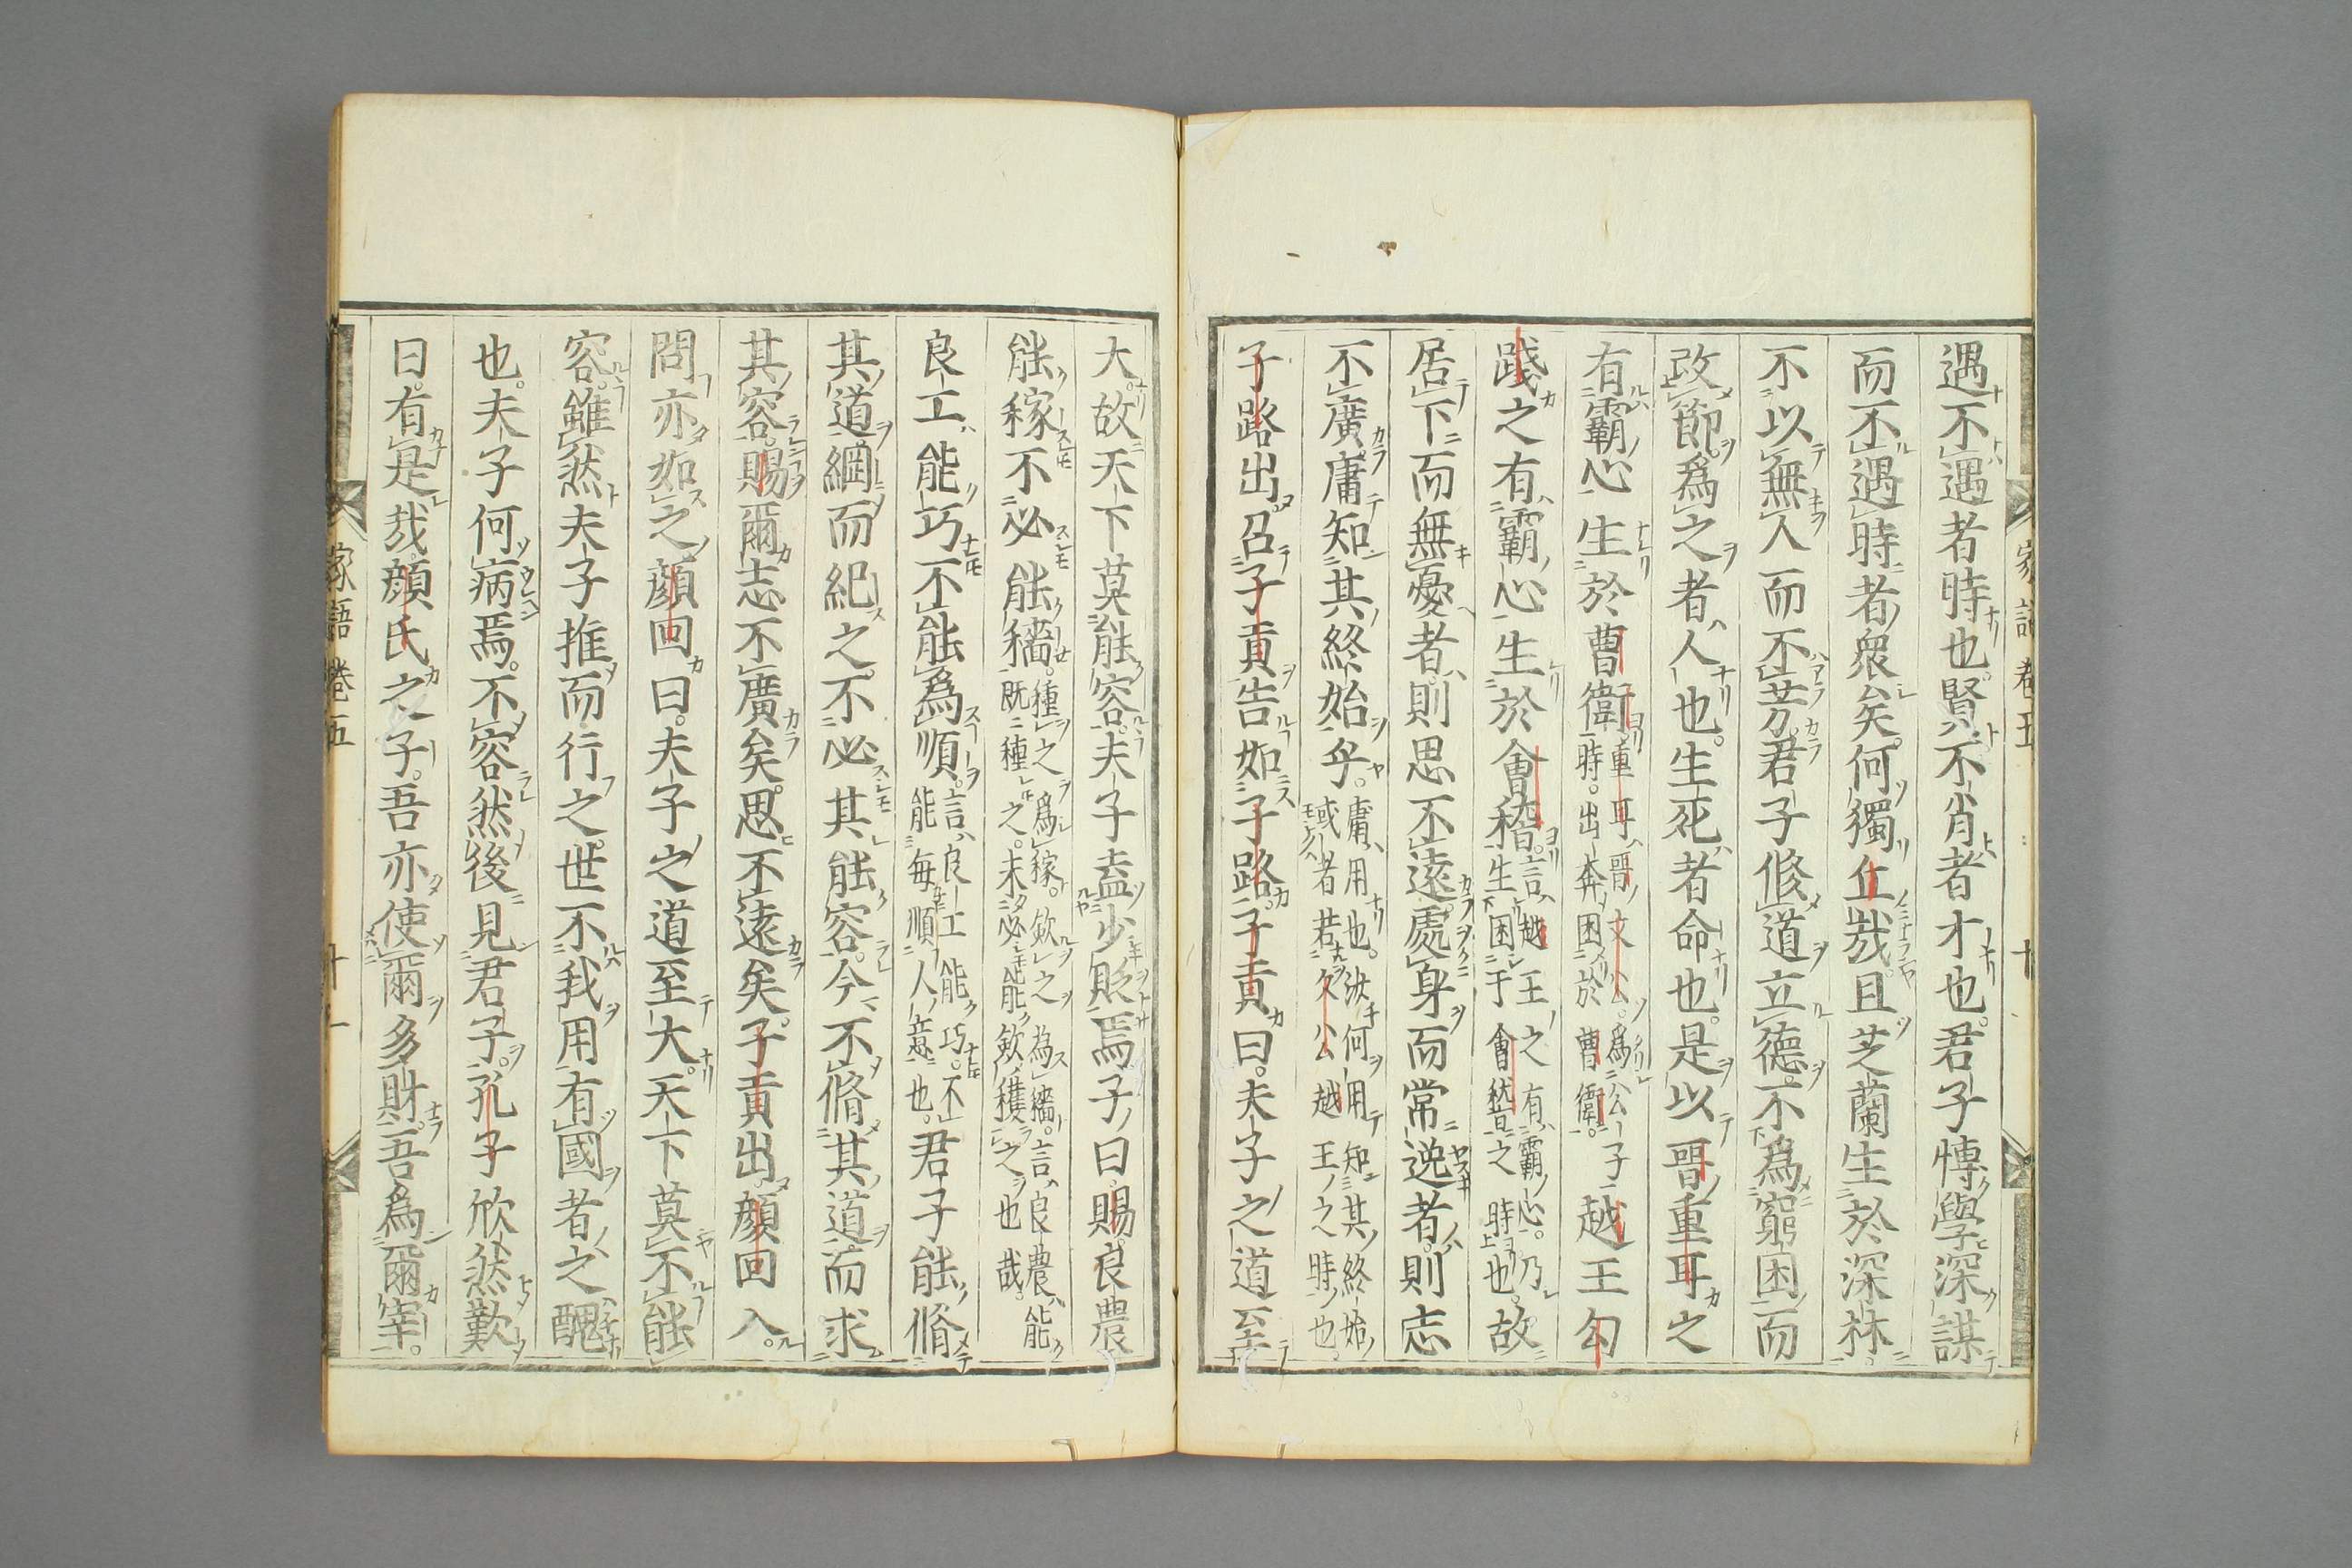 家語卷五 十
遇不遇者時也。賢不肖者才也。君子博學深謀
而不遇時者衆矣。何獨丘哉。且芝蘭生於深林。
不以無人而不芳。君子修道立德。不爲窮困而
改節。爲之者人也。生死者命也。是以晋重耳之
有霸心生於曹衛重耳晋文公爲公子
時。出奔困於曹衛。越王勾
踐之有霸心生於會稽。言越王之有霸心。乃
生困于會稽之時也。故
居下而無憂者。則思不遠。處身而常逸者。則志
不廣。庸知其終始乎。庸用也。汝何用知其終始
或者若文公越王之時也。
子路出召子貢告如子路。子貢曰。夫子之道至
大。故天下莫能容。夫子盍少貶焉。子曰。賜。良農
能稼不必能穡。種之爲稼。斂之爲穡。言良農能
既種之。未必能斂穫之也哉。
良工能巧不能爲順。言良工能巧。不
能每順人意也。君子能脩
其道綱而紀之。不必其能容。今不脩其道而求
其容。賜爾志不廣矣。思不遠矣。子貢出。顏回入。
問亦如之顏回曰。夫子之道至大。天下莫不能
容。雖然夫子推而行之。世不我用有國者之醜
也。夫子何病焉。不容然後見君子。孔子欣然歎
曰。有是哉。顏氏之子。吾亦使爾多財。吾爲爾宰。
家語卷五 十一